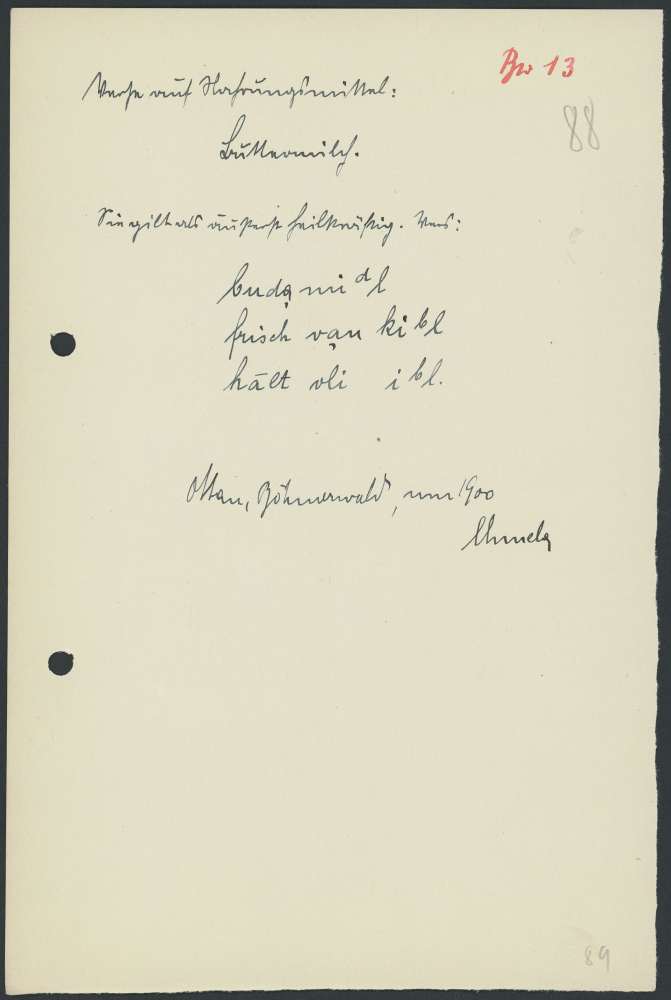 Bw 13
Verse auf Nahrungsmittel:
88
Buttermilch.
Sie gilt als äußerst heilkräftig. Vers:
budạmidl
frisch vạn kibl
hālt oli ibl.
Ottau, Böhmerwald, um 1900
89